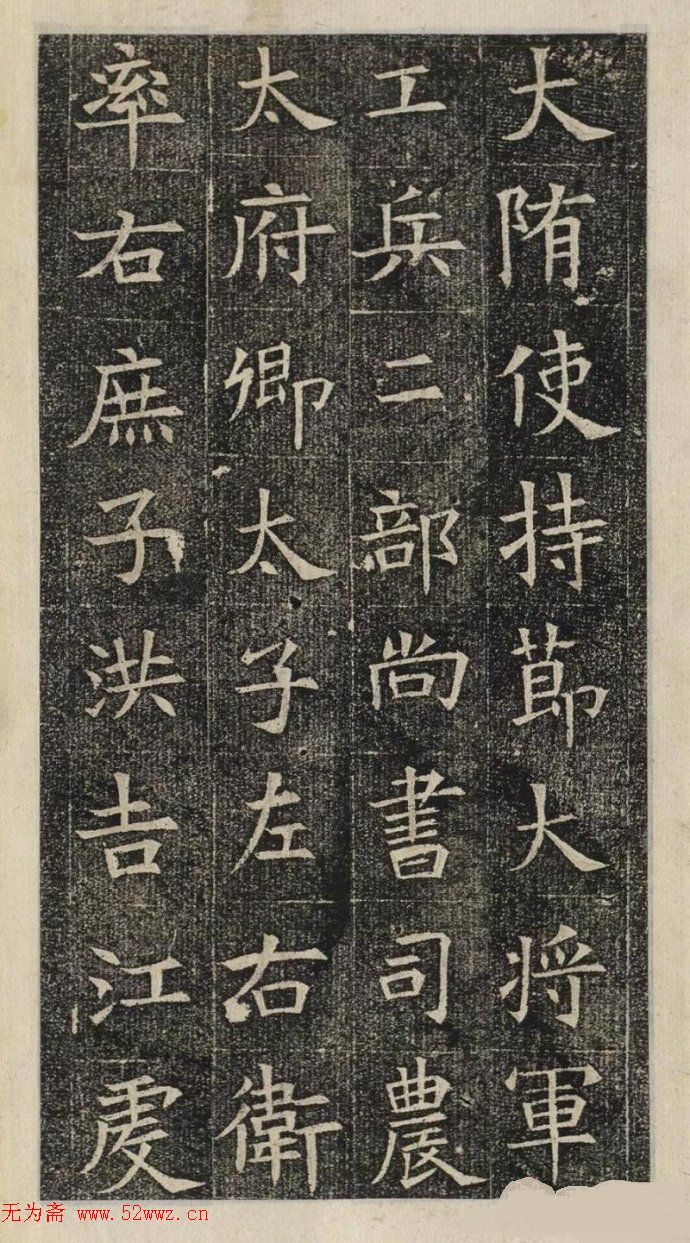 大陏使持莭大将軍
工兵二部尚書司農
太府卿太子左右衛
率右庶子洪𠮷江虔
无为斋 www.52wwz.cn